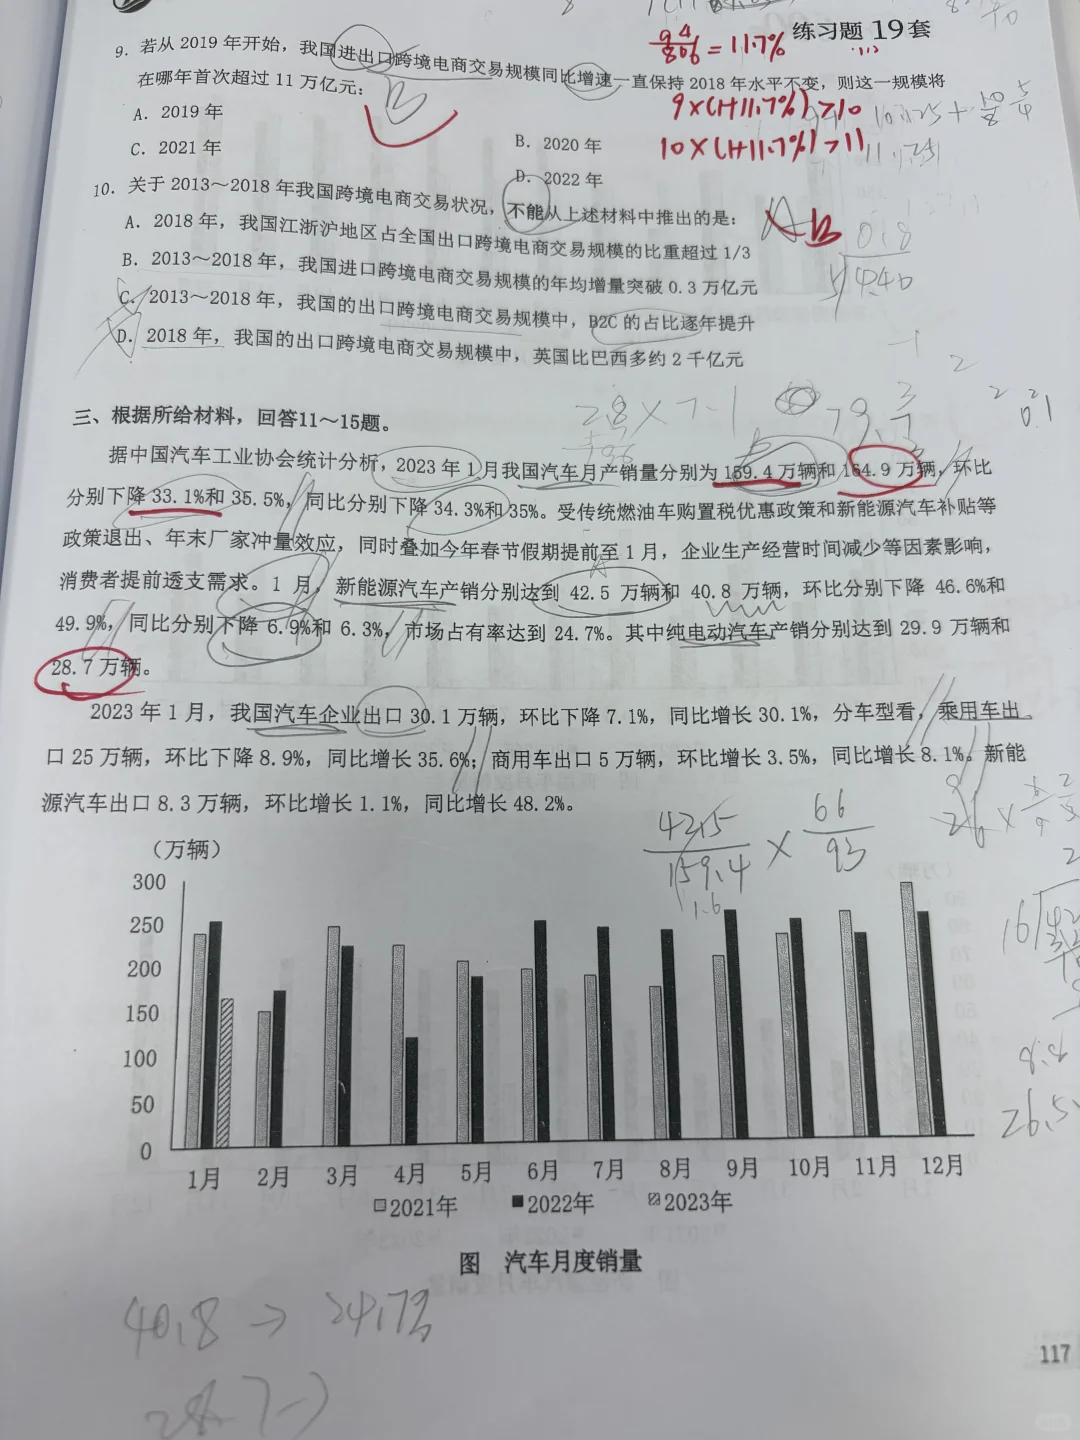 练习题 19 套
9. 若从 2019 年开始，我国进出口跨境电商交易规模同比增速一直保持 2018 年水平不变，则这一规模将
在哪年首次超过 11 万亿元：
A. 2019 年
B. 2020 年
C. 2021 年
D. 2022 年
94/806 = 11.7%
9×(1+11.7%)>10
10×(1+11.7%)>11
B
10. 关于 2013～2018 年我国跨境电商交易状况，不能从上述材料中推出的是：
A. 2018 年，我国江浙沪地区占全国出口跨境电商交易规模的比重超过 1/3
B. 2013～2018 年，我国进口跨境电商交易规模的年均增量突破 0.3 万亿元
C. 2013～2018 年，我国的出口跨境电商交易规模中，B2C 的占比逐年提升
D. 2018 年，我国的出口跨境电商交易规模中，英国比巴西多约 2 千亿元
A B
三、根据所给材料，回答11～15题。
据中国汽车工业协会统计分析，2023 年 1 月我国汽车月产销量分别为 159.4 万辆和 164.9 万辆，环比
分别下降 33.1%和 35.5%，同比分别下降 34.3%和 35%。受传统燃油车购置税优惠政策和新能源汽车补贴等
政策退出、年末厂家冲量效应，同时叠加今年春节假期提前至 1 月，企业生产经营时间减少等因素影响，
消费者提前透支需求。1 月，新能源汽车产销分别达到 42.5 万辆和 40.8 万辆，环比分别下降 46.6%和
49.9%，同比分别下降 6.9%和 6.3%，市场占有率达到 24.7%。其中纯电动汽车产销分别达到 29.9 万辆和
28.7 万辆。
2023 年 1 月，我国汽车企业出口 30.1 万辆，环比下降 7.1%，同比增长 30.1%，分车型看，乘用车出
口 25 万辆，环比下降 8.9%，同比增长 35.6%；商用车出口 5 万辆，环比增长 3.5%，同比增长 8.1%。新能
源汽车出口 8.3 万辆，环比增长 1.1%，同比增长 48.2%。
42.5/159.4 × 66/93
1.6
26.5
（万辆）
300
250
200
150
100
50
0
1月 2月 3月 4月 5月 6月 7月 8月 9月 10月 11月 12月
2021年 2022年 2023年
图 汽车月度销量
40.8 → 24.7%
117